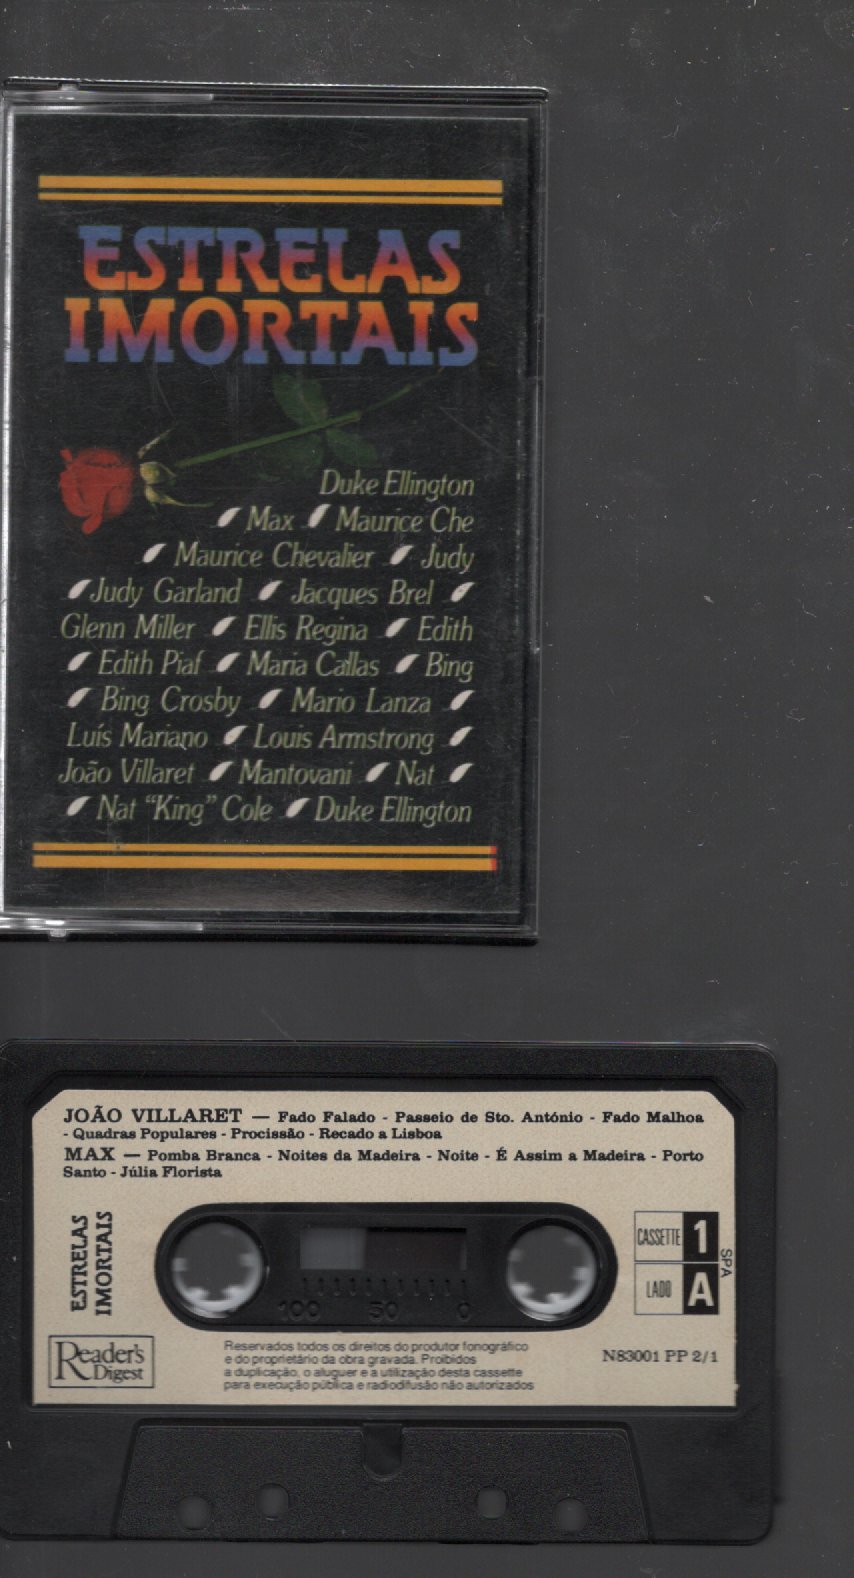 ESTRELAS
IMORTAIS
Duke Ellington
Max Maurice Che
Maurice Chevalier Judy
Judy Garland Jacques Brel
Glenn Miller Ellis Regina Edith
Edith Piaf Maria Callas Bing
Bing Crosby Mario Lanza
Luís Mariano Louis Armstrong
João Villaret Mantovani Nat
Nat “King” Cole Duke Ellington
JOÃO VILLARET — Fado Falado - Passeio de Sto. António - Fado Malhoa
- Quadras Populares - Procissão - Recado a Lisboa
MAX — Pomba Branca - Noites da Madeira - Noite - É Assim a Madeira - Porto
Santo - Júlia Florista
ESTRELAS
IMORTAIS
100 50 0
CASSETTE 1
LADO A
SPA
Reader's
Digest
Reservados todos os direitos do produtor fonográfico
e do proprietário da obra gravada. Proibidos
a duplicação, o aluguer e a utilização desta cassette
para execução pública e radiodifusão não autorizados
N83001 PP 2/1